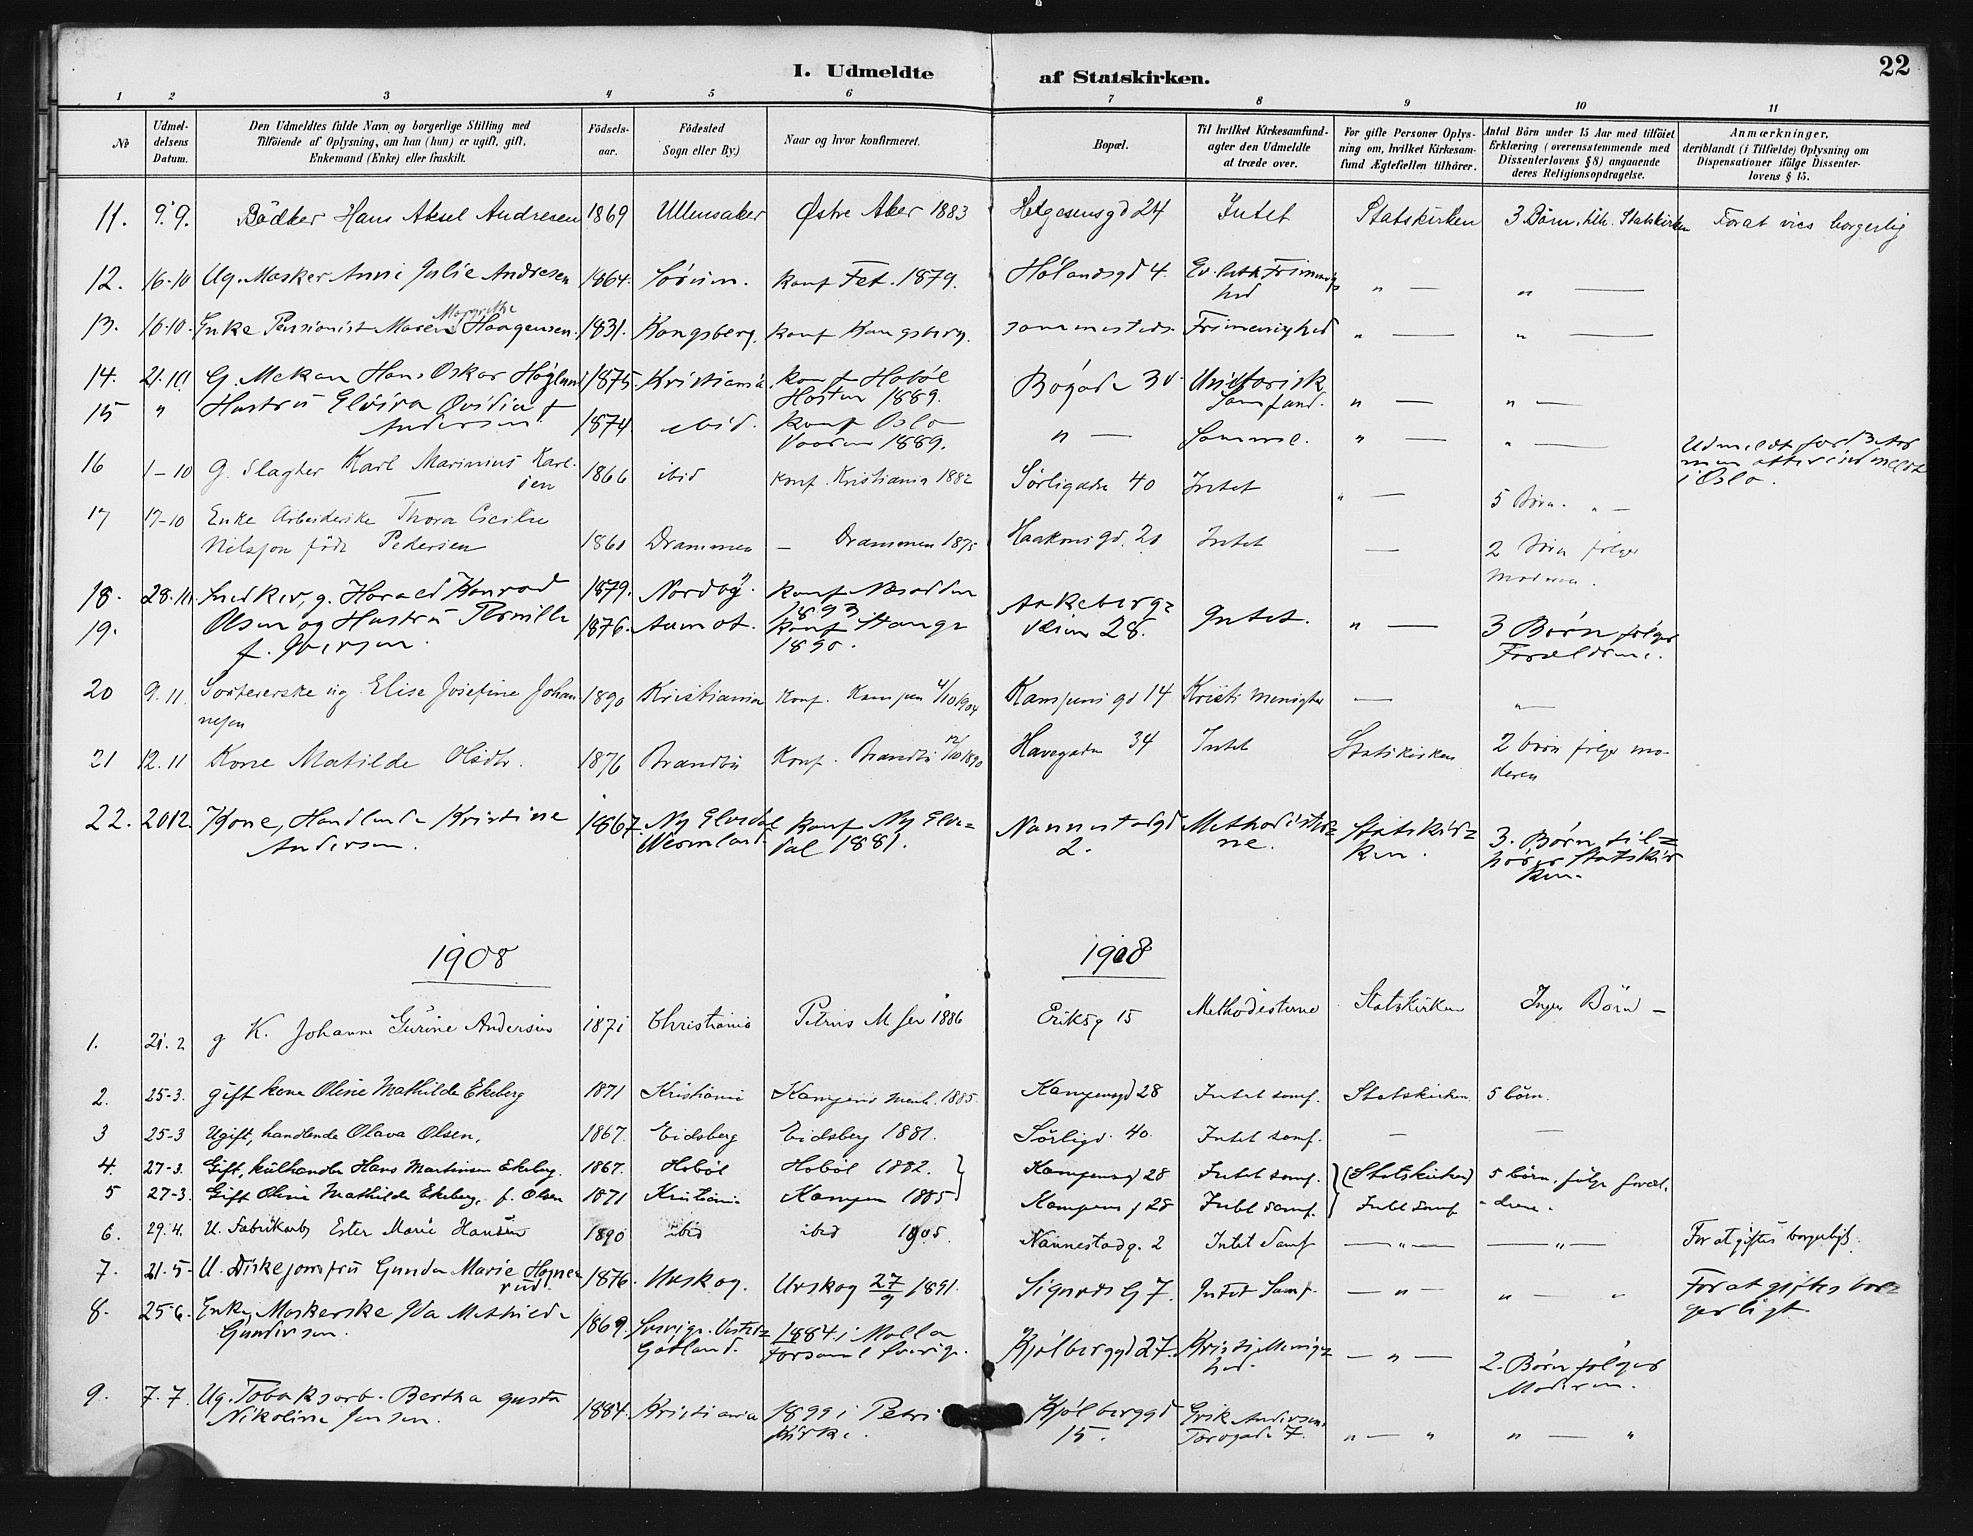 22
I. Udmeldte af Statskirken.
1 2 3 4 5 6 7 8 9 10 11
№ | Udmel-delsens Datum. | Den Udmeldtes fulde Navn og borgerlige Stilling med Tilföiende af Oplysning, om han (hun) er ugift, gift, Enkemand (Enke) eller fraskilt. | Födsels-aar. | Födested Sogn eller By.) | Naar og hvor konfirmeret. | Bopæl. | Til hvilket Kirkesamfund-agter den Udmeldte at træde over. | For gifte Personer Oplys-ning om, hvilket Kirkesam-fund Ægtefællen tilhörer. | Antal Börn under 15 Aar med tilföiet Erklæring (overensstemmende med Dissenterlovens § 8) angaaende deres Religionsopdragelse. | Anmærkninger, deriblandt (i Tilfælde) Oplysning om Dispensationer ifölge Dissenter-lovens § 15.
11. 9.9. Bödker Hans Aksel Andresen 1869 Ullensaker Østre Aker 1883 Helgesensgd 24 Intet Statskirken 3 Börn, tilh. Statskirken For at vies borgerlig
12. 16-10 Ug. Masker Anne Julie Andresen 1864. Sørum. konf Fet. 1879. Hølandsgd 4. Ev. luth Frimenighed " — " —
13. 16-10. Enke Pensionist Maren Margrethe Haagensen. 1831. Kongsberg. konf Kongsberg. sammesteds. Frimenighed " — " —
14. 21.10 G. Mekan Hans Oskar Høglund 1875. Kristiania. konf Hobøl Høsten 1889. Bøgade 30. Unitarisk Samfund. " — " —
15 " Hustru Elvira Ovidia f Andersen. 1874. ibid. konf Oslo Vaaren 1889. " — Samme. " — " —
16 1-10 G. Slagter Karl Marinius Karlsen 1866 ibid konf. Kristiania 1882 Sörligaden 40 Intet " — 5 Börn. " — Udmeldt for 13 Aar men atter indmeldt i Oslo.
17 17-10 Enke Arbeiderske Thora Cecilie Nilsson född Pedersen 1860 Drammen — Drammen 1875 Haakonsgd. 20 Intet — 2 börn følger moderen.
18. 28.10. Snedker, g. Harald Konrad 1879. Nordby. konf Modum 1893 Aakebergveien 28. Intet. " — 3 Børn følger Forældrene.
19. Olsen og Hustru Pernille f. Iversen. 1876. Aamot. konf Stange 1890.
20 9.11. Sorterske ug. Elise Josefine Johannesen 1890 Kristiania Konf. Kampen 4/10 1904 Kampens gd 14 Kristi Menighet — "
21 12.11 Kone Matilde Olsdtr. 1876 Brandbu Konf. Brandbu 12/10 1890 Havegaden 34 Intet Statskirken 2 børn følge moderen
22. 20 12. Kone, Handlende Kristine Andersen. 1867. Ny Elvedal Wermland. konf Ny Elvedal 1881. Nannestadgd 2. Methodisterne. Statskirken. 3. Børn tilhører Statskirken.
1908 1908
1. 21.2 g K. Johanne Gurine Andersen 1871 Christiania Petrus M fer 1886 Eriksg 15 Methodisterne Statskirken Ingen Börn —
2. 25-3. gift kone Oline Mathilde Ekeberg 1871 Kristiania Kampens menh. 1885. Kampensgd 28 Intet samf. Statskirken 5 børn.
3 25-3 Ugift, handlende Olava Olsen, 1867. Eidsberg Eidsberg 1881. Sörligd. 40. Intet samf. — —
4. 27-3. Gift, kulhandler Hans Martinsen Ekeberg. 1867. Hobøl Hobøl 1882. Kampensgd 28 Intet samf. (Statskirken) 5 børn, følge foræl-
5 27-3. Gift Oline Mathilde Ekeberg, f. Olsen 1871 Kristiania Kampen 1885 Kampens g 28 Intet samf. Intet samf - drene.
6. 29.4. U. Fabrikarb Ester Marie Hansen 1890 ibid ibid 1905. Nannestadg. 2 Intet Samf — " — — " — For at giftes borgerligt.
7. 21.5- U. Diskejomfru Gunda Marie Hognerud. 1876. Urskog. Urskog 27/9 1891. Sigurds G 7. Intet Samf. — " — " — " For at giftes borgerligt.
8. 25-6. Enke, Maskerske Ida Mathilde Gundersen. 1869. Sverige. Vester Götland. 1884 i Molla Forsaml Sverige. Kjølberggd 27. Kristi Menighed. — " — 2. Børn følger Moderen.
9. 7.7. Ug. Tobaksarb. Bertha Gusta Nikoline Jensen. 1884. Kristiania 1899 i Petri Kirke. Kjølberggd 15. Erik Andersens Torvgade 7. " — " " — "